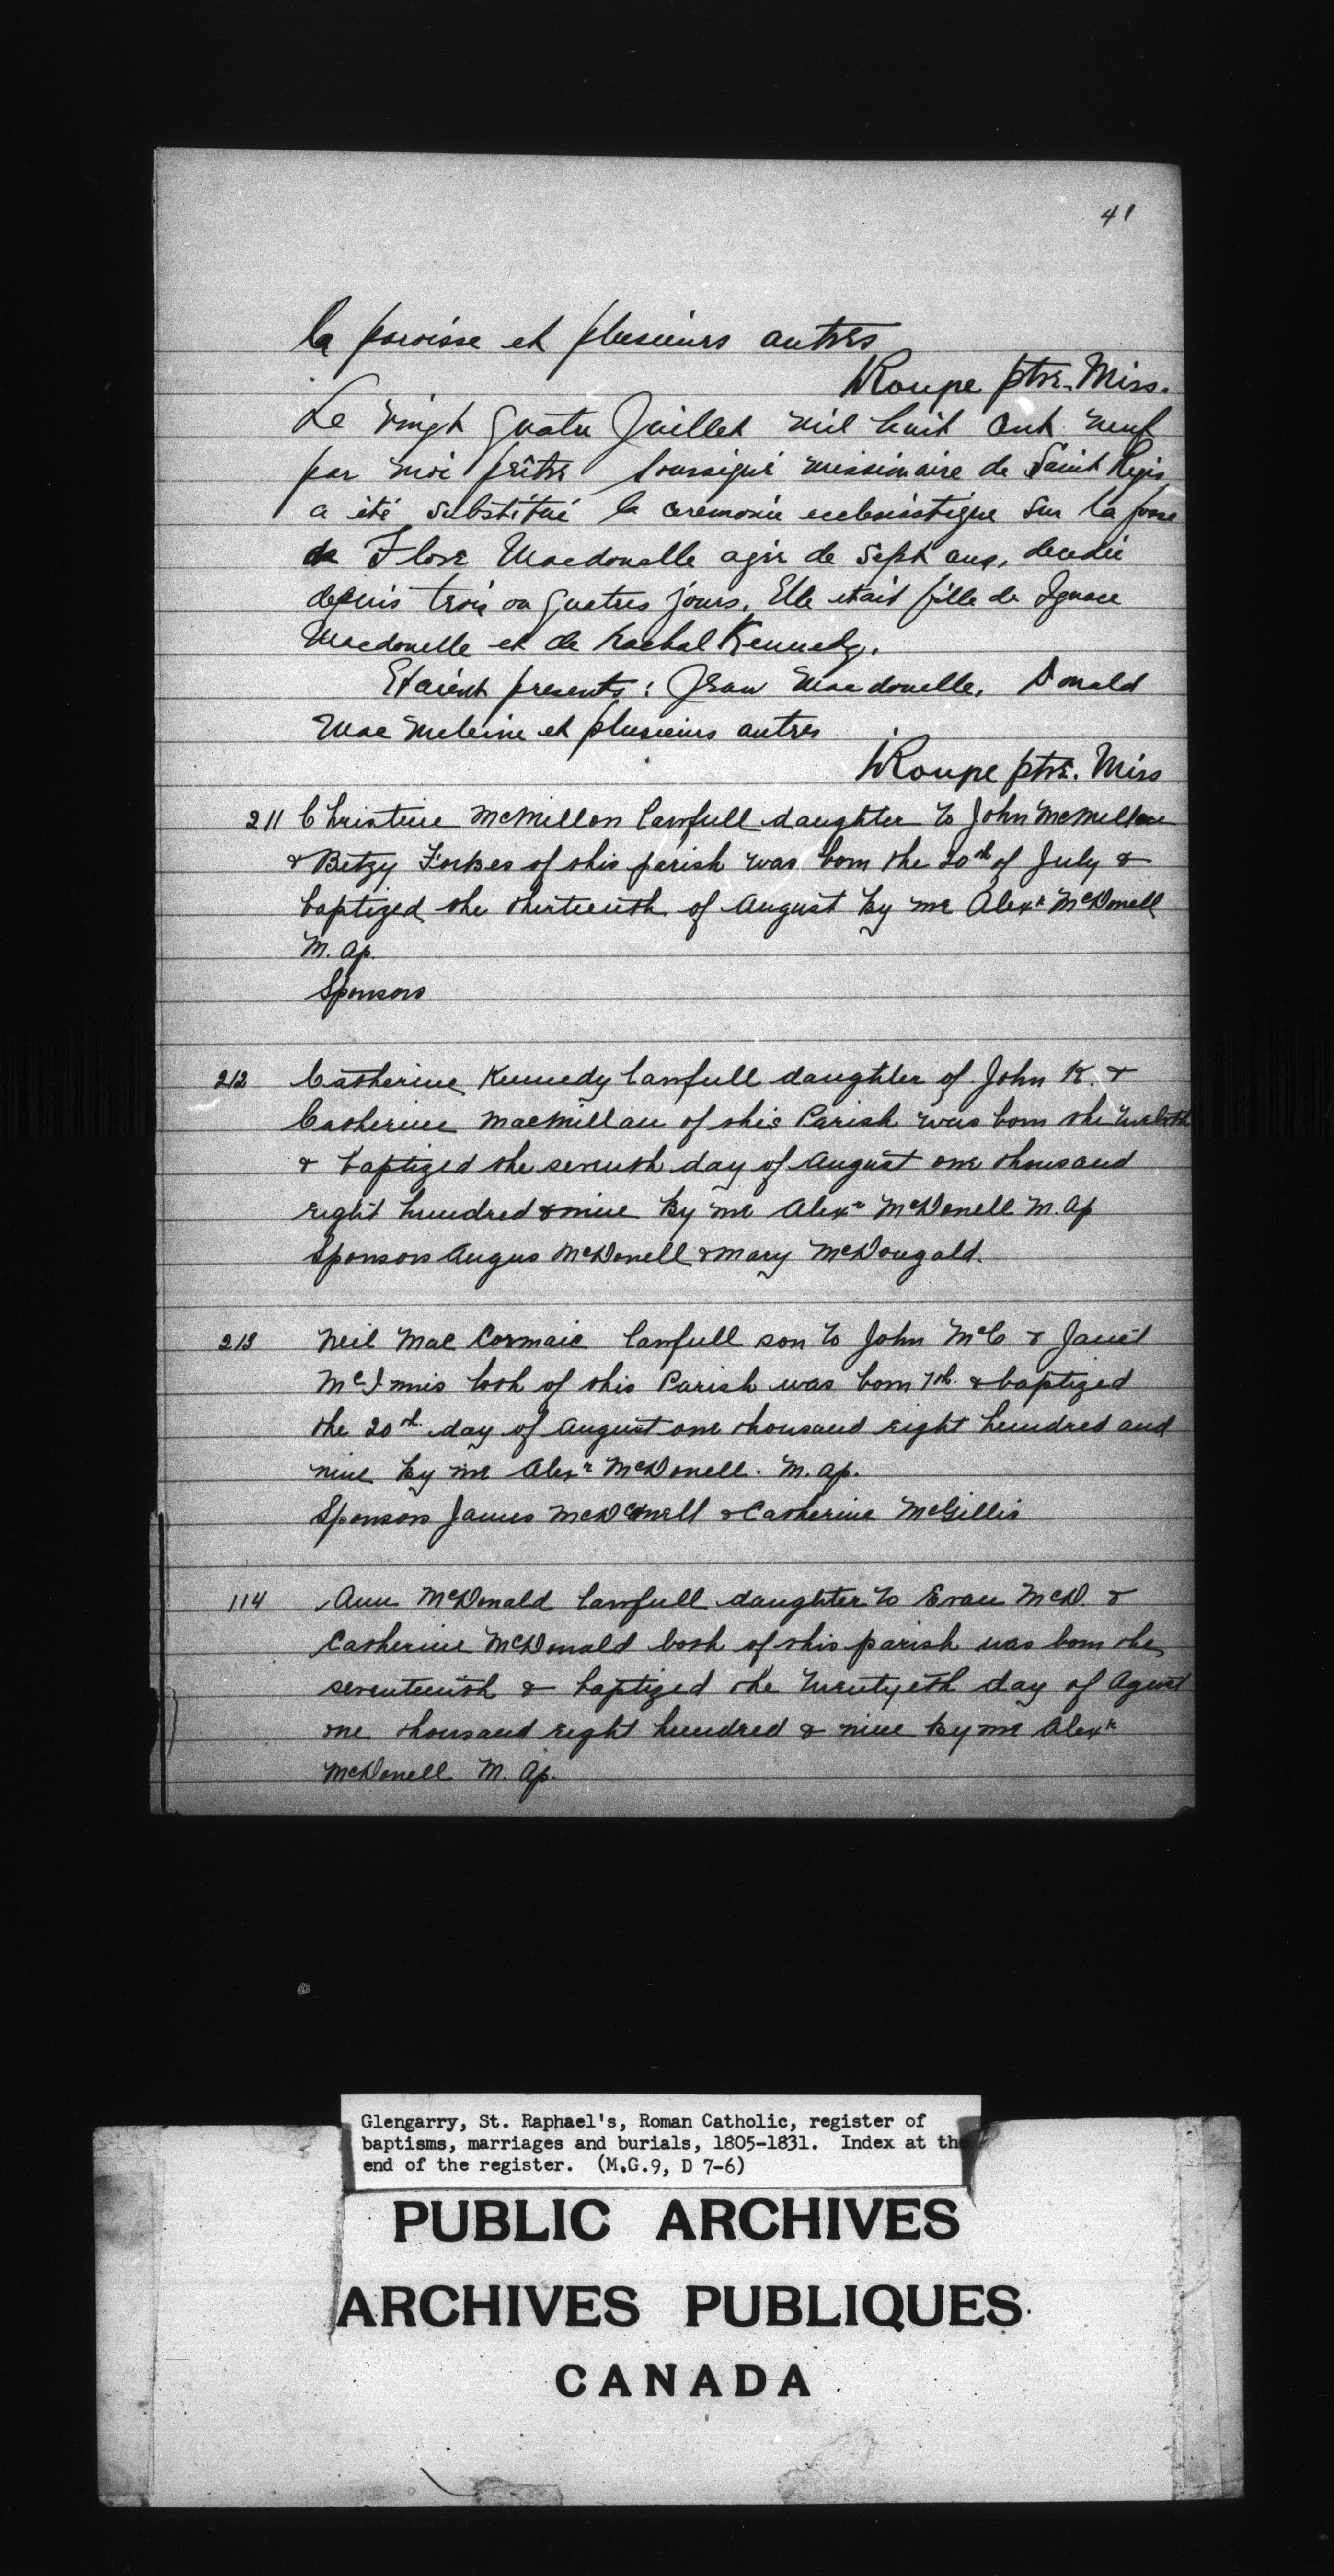 41
la paroisse et plusieurs autres
Roupe ptre. Miss.
Le vingt quatre Juillet mil huit cent neuf
par moi prêtre soussigné missionaire de Saint Regis
a été substitué la ceremonie ecclesiastique sur la fosse
de Flore Macdonelle agée de sept ans, decedée
depuis trois ou quatres jours. Elle etait fille de Ignace
Macdonelle et de Rachal Kennedy.
Etaient presents: Jean Macdonelle, Donald
Mac et plusieurs autres
Roupe ptre. Miss
211 Christine McMillon lawfull daughter to John McMillan
& Betzy Forbes of this parish was born the 20th of July &
baptized the thirteenth of August by me Alexr McDonell
M. Ap.
Sponsors
212 Catherine Kennedy lawfull daughter of John K. &
Catherine MacMillan of this Parish was born the twelvth
& baptized the seventh day of August one thousand
eight hundred & nine by me Alexr McDonell M. Ap
Sponsors Angus McDonell & Mary McDougald.
213 Neil Mac Cormaic lawfull son to John McC & Janet
McInnis both of this Parish was born 7th. & baptized
the 20th. day of August one thousand eight hundred and
nine by me Alexr McDonell. M. Ap.
Sponsors James McDonell & Catherine McGillis
114 Ann McDonald lawfull daughter to Evan McD. &
Catherine McDonald both of this parish was born the
seventeenth & baptized the twentyeth day of Agust
one thousand eight hundred & nine by me Alexr
McDonell M. Ap.
Glengarry, St. Raphael's, Roman Catholic, register of
baptisms, marriages and burials, 1805-1831. Index at the
end of the register. (M.G.9, D 7-6)
PUBLIC ARCHIVES
ARCHIVES PUBLIQUES
CANADA